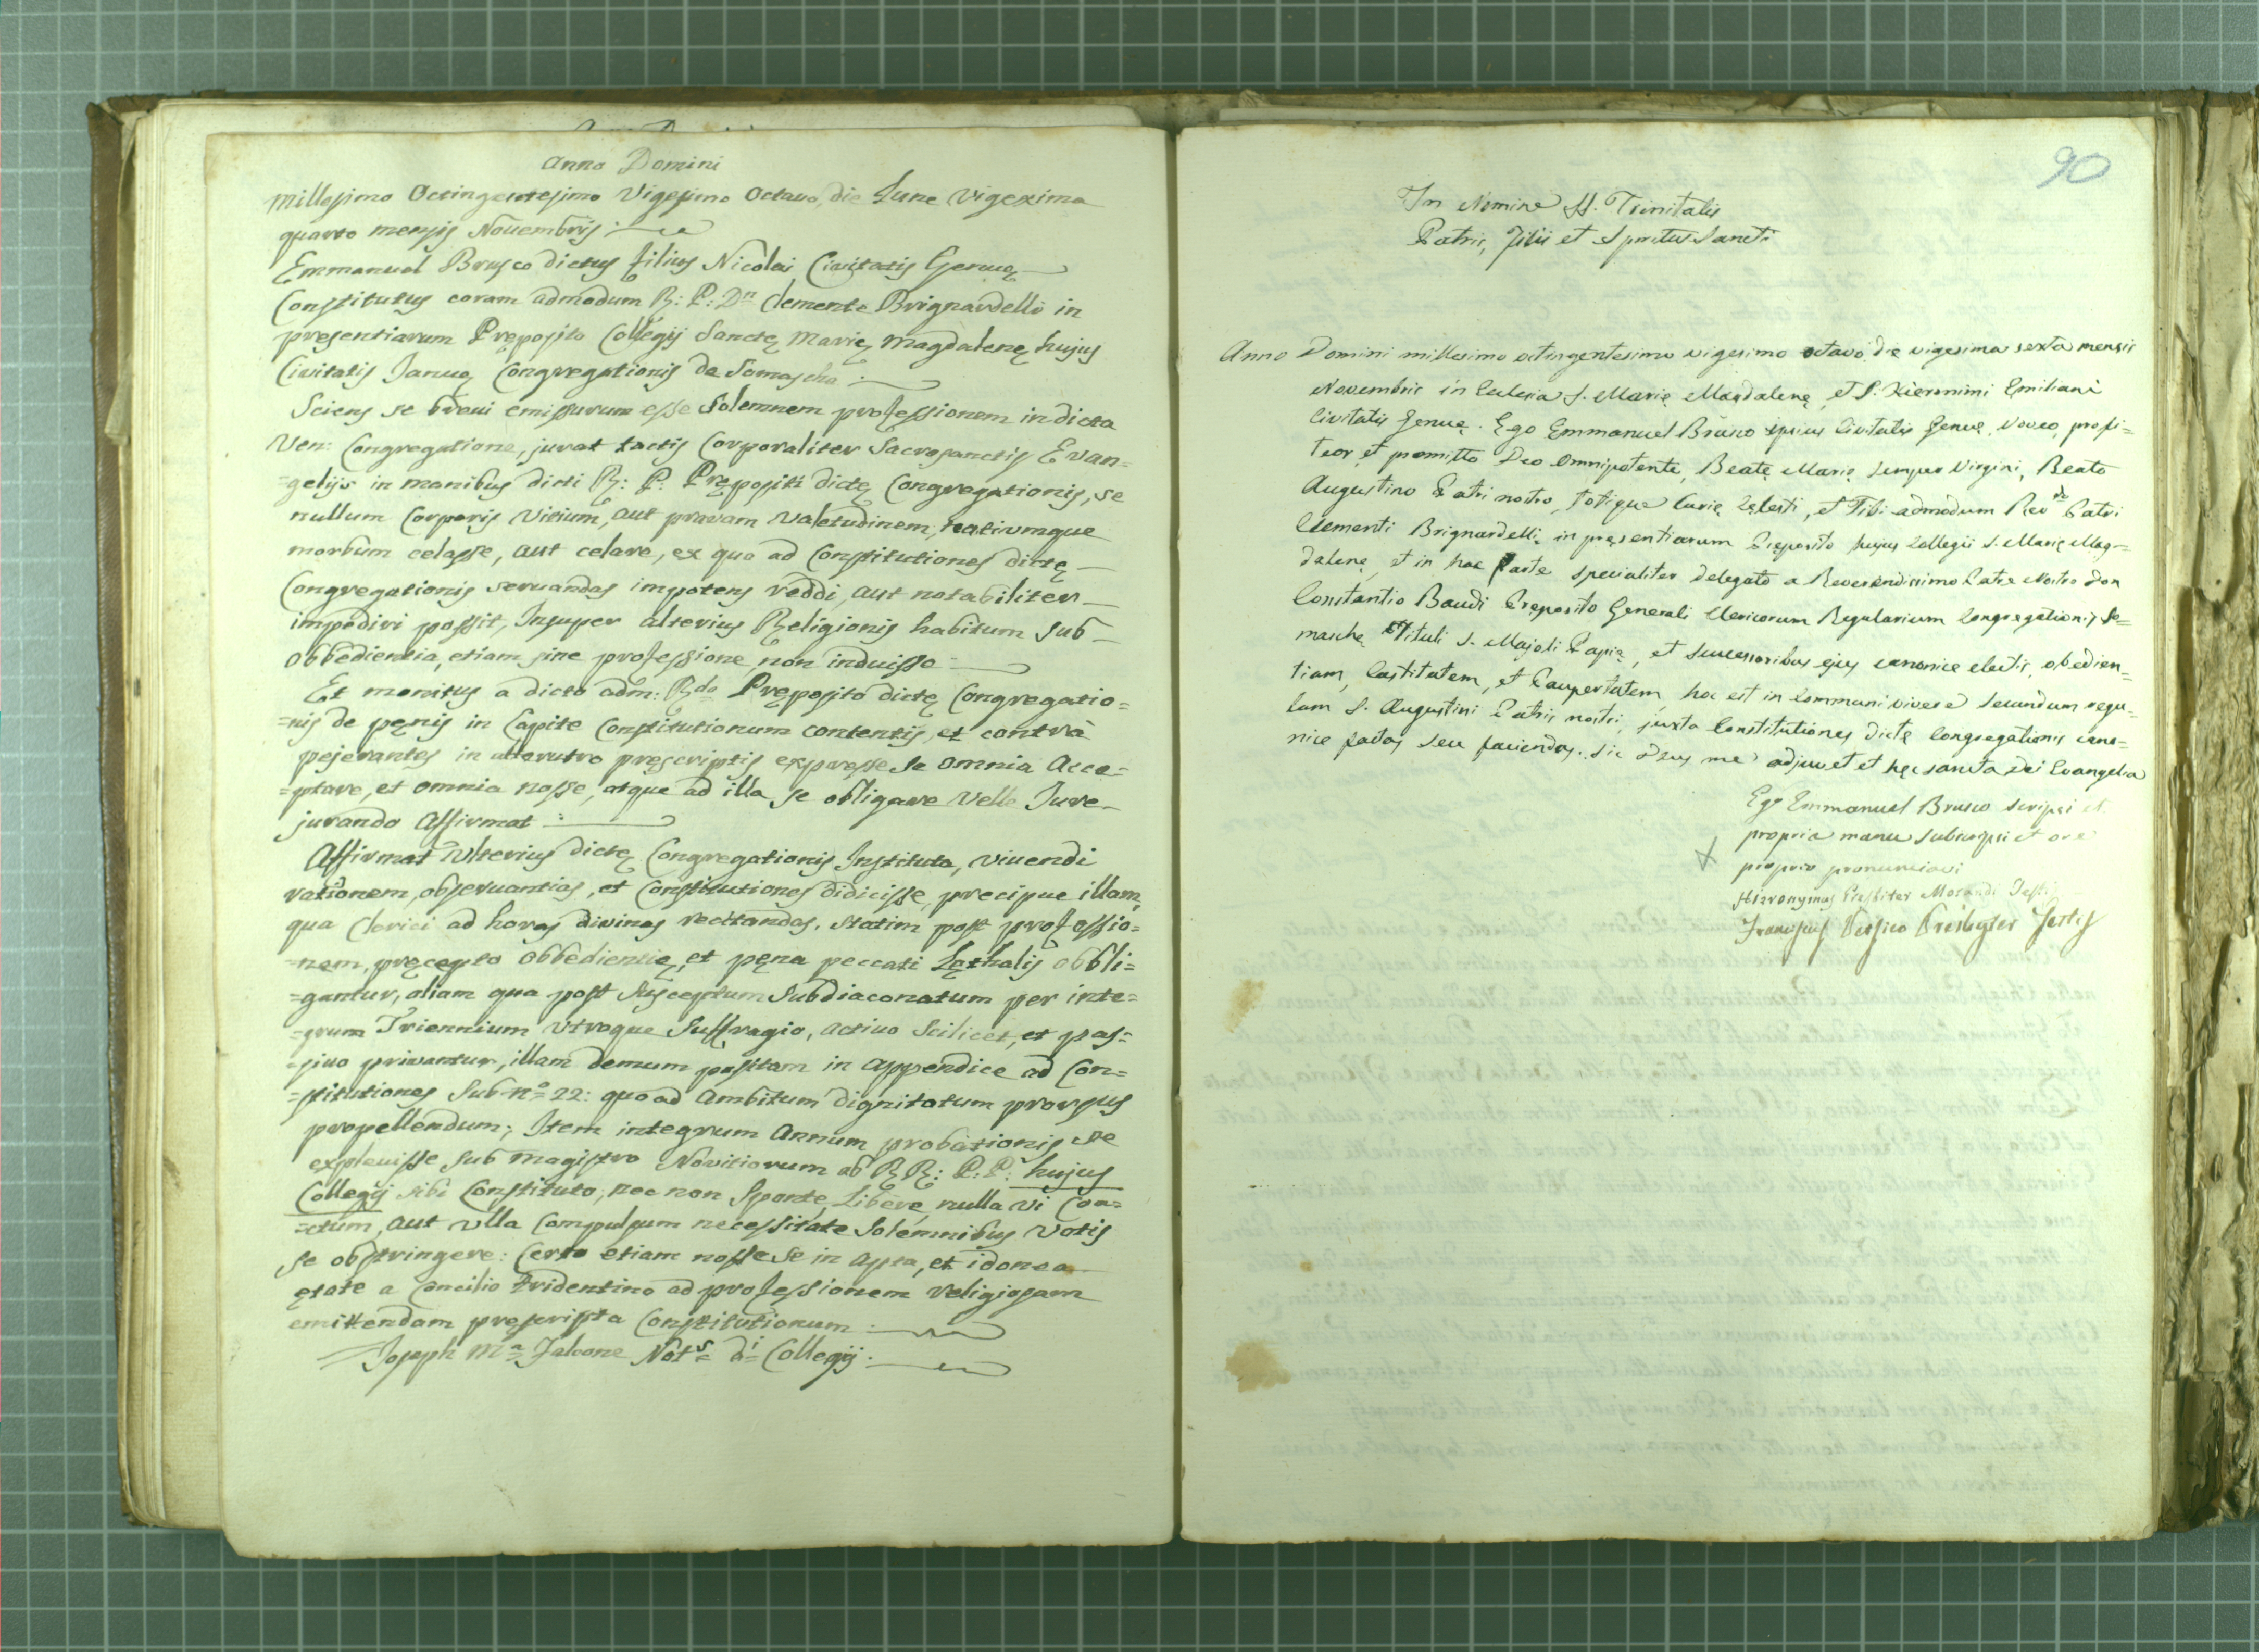 Anno Domini
Millesimo Octingentesimo Vigesimo Octavo, die Lune Vigexima
quarto mensis Novembris:
Emmanuel Brusco dictus filius Nicolai Civitatis Genuę
Constitutus coram admodum R: P: Dn Clemente Brignardelli in
presentiarum Pręposito Collegij Sanctę Marię Magdalenę hujus
Civitatis Januę Congregationis de Somascha:
Sciens se brevi emissurum esse Solemnem professionem in dicta
Ven: Congregatione, jurat tactis Corporaliter Sacrosanctis Evan=
=gelijs in manibus dicti R: P: Prępositi dictę Congregationis, se
nullum Corporis Vitium, aut pravam Valetudinem,
morbum celasse, aut celare, ex quo ad Constitutiones dictę
Congregationis servandas impotens reddi, aut notabiliter
impediri possit, Insuper alterius Religionis habitum sub
obbedientia, etiam sine professione non induisse
Et monitus a dicto adm: Rdo Pręposito dictę Congregatio=
=nis de pęnis in Capite Constitutionum contentis, et contrà
pejerantes in alterutro pręscriptis expresse se omnia Acce=
=ptare, et omnia nosse, atque ad illa se obligare Velle Jure
jurando Affirmat:
Affirmat Ulterius dictę Congregationis Instituta, vivendi
rationem, observantias, et Constitutiones didicisse, precipue illam,
qua Clerici ad horas divinas recitandas, statim post professio=
=nem, pręcepto obbedientię, et pęna peccati Lęthalis obbli=
=gantur, aliam qua post susceptum Subdiaconatum per inte=
=grum Triennium utroque Suffragio, activo Scilicet, et pas=
=sivo privantur, illam demum positam in appendice ad Con=
=stitutiones Sub n° 22: quo ad Ambitum dignitatum prorsus
propellendum; Item integrum Annum probationis se
explevisse sub Magistro Novitiorum ab RR: P:P: hujus
Collegij sibi Constituto, nec non Sponte, Libere, nulla vi Coa=
=ctum, aut Ulla Compulsum necessitate Solemnibus Votis
se obstringere: Certo etiam nosse se in apta, et idonea
ętate a Concilio Tridentino ad professionem religiosam
emittendam pręscripta Constitutionum
Joseph Ma Falcone Nots di Collegij:
90
In Nomine SS. Trinitatis
Patris, Filii et Spiritus Sancti
Anno Domini millesimo octingentesimo vigesimo octavo die vigesima sexta mensis
Novembris in Eclesia S. Marię Magdalenę, et S. Hieronimi Emiliani
Civitatis Genuę. Ego Emmanuel Brusco ipsius Civitatis Genuę, voveo, profi=
teor, et promitto Deo Omnipotente, Beatę Marię semper Virgini, Beato
Augustino Patri nostro, totique Curię Cęlesti, et Tibi admodum Revdo Patri
Clementi Brignardelli, in pręsentiarum Pręposito hujus Collegii S. Marię Mag=
dalenę, et in hac parte specialiter delegato a Reverendissimo Patre Nostro Don
Constantio Baudi Pręposito Generali Clericorum Regularium Congregationis So=
maschę Tituli S. Majoli Papię, et successoribus ejus canonice electis, obedien=
tiam, Castitatem, et Paupertatem, hoc est in communi vivere secundum regu=
lam S. Augustini Patris nostri, juxta Constitutiones dictę Congregationis cano=
nice factas seu faciendas. Sic Deus me adjuvet et hęc sancta Dei Evangelia
Ego Emmanuel Brusco scripsi et
propria manu subscripsi et ore
proprio pronunciavi
Hieronymus Presbiter Morandi Testis
Franciscus Presbyter Testis